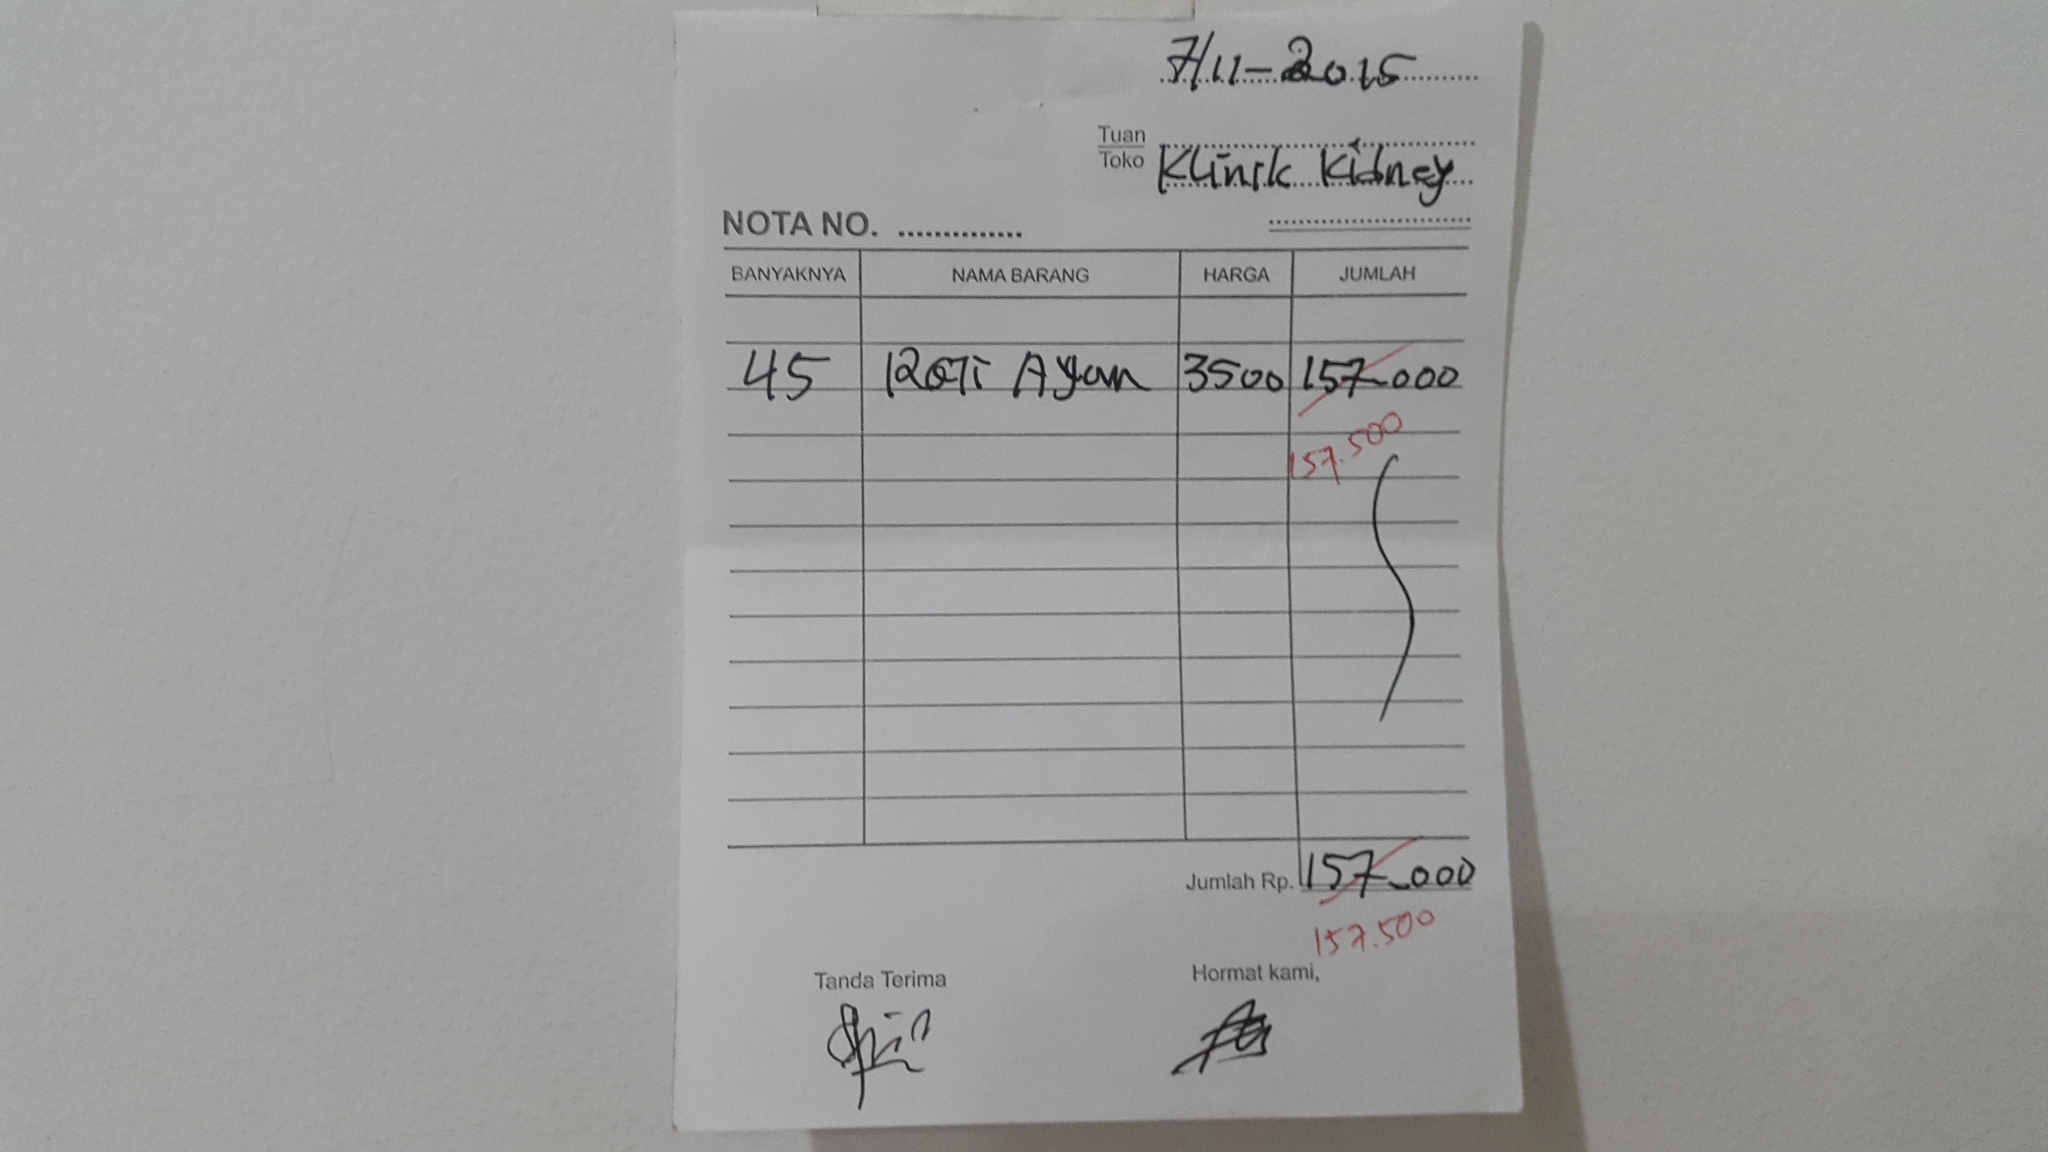 7/11-2015
Tuan
Toko Klinik Kidney
NOTA NO. ..............
BANYAKNYA NAMA BARANG HARGA JUMLAH
45 Roti Ayam 3500 157.000
157.500
Jumlah Rp. 157.000
157.500
Tanda Terima Hormat kami,